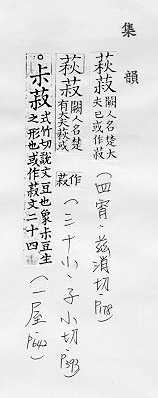 集韻
萩菽 闕人名楚大夫巳或作菽 (四宵、茲消切、P178)
萩菽 闕人名楚有大夫萩或作菽 (三十小、子小切、P393)
。尗菽 式竹切說文豆也象尗豆生之形也或作菽文二十四 (一屋、P642)